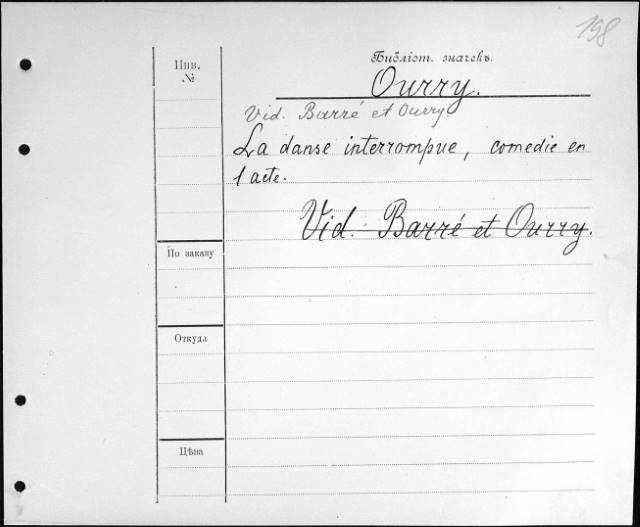 198
Библіот. значекъ.
Инв.
№
Ourry.
Vid. Barré et Ourry
La danse interrompue, comedie en
1 acte.
Vid. Barré et Ourry.
По заказу
Откуда
Цѣна